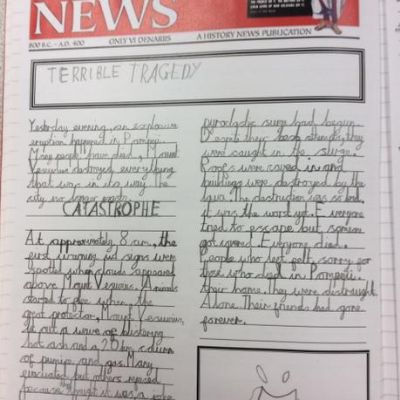 NEWS
800 B.C. - A.D. 400
ONLY VI DENARIIS
A HISTORY NEWS PUBLICATION
TERRIBLE TRAGEDY
Yesterday evening, an explosive
eruption happened in Pompeii.
Many people have died, Mount
Vesuvius destroyed everything
that was in its way. The
city no longer exists.
CATASTROPHE
At approximately 8 am, the
first warning signs were
spotted when clouds appeared
above Mount Vesuvius. Animals
started to flee when the
great protector, Mount Vesuvius,
let out a wave of blistering
hot ash and a 20 km column
of pumice and gas. Many
evacuated but others
because they thought it was a
pyroclastic surge had begun.
Despite their strength, they
were caught in the surge.
Roofs were caved in and
buildings were destroyed by the
lava. The destruction was so bad,
it was the worst yet. Everyone
tried to escape but
got Everyone died.
People who left felt sorry for
those who died in Pompeii,
their home. They were distraught.
Alone. Their friends had gone
forever.